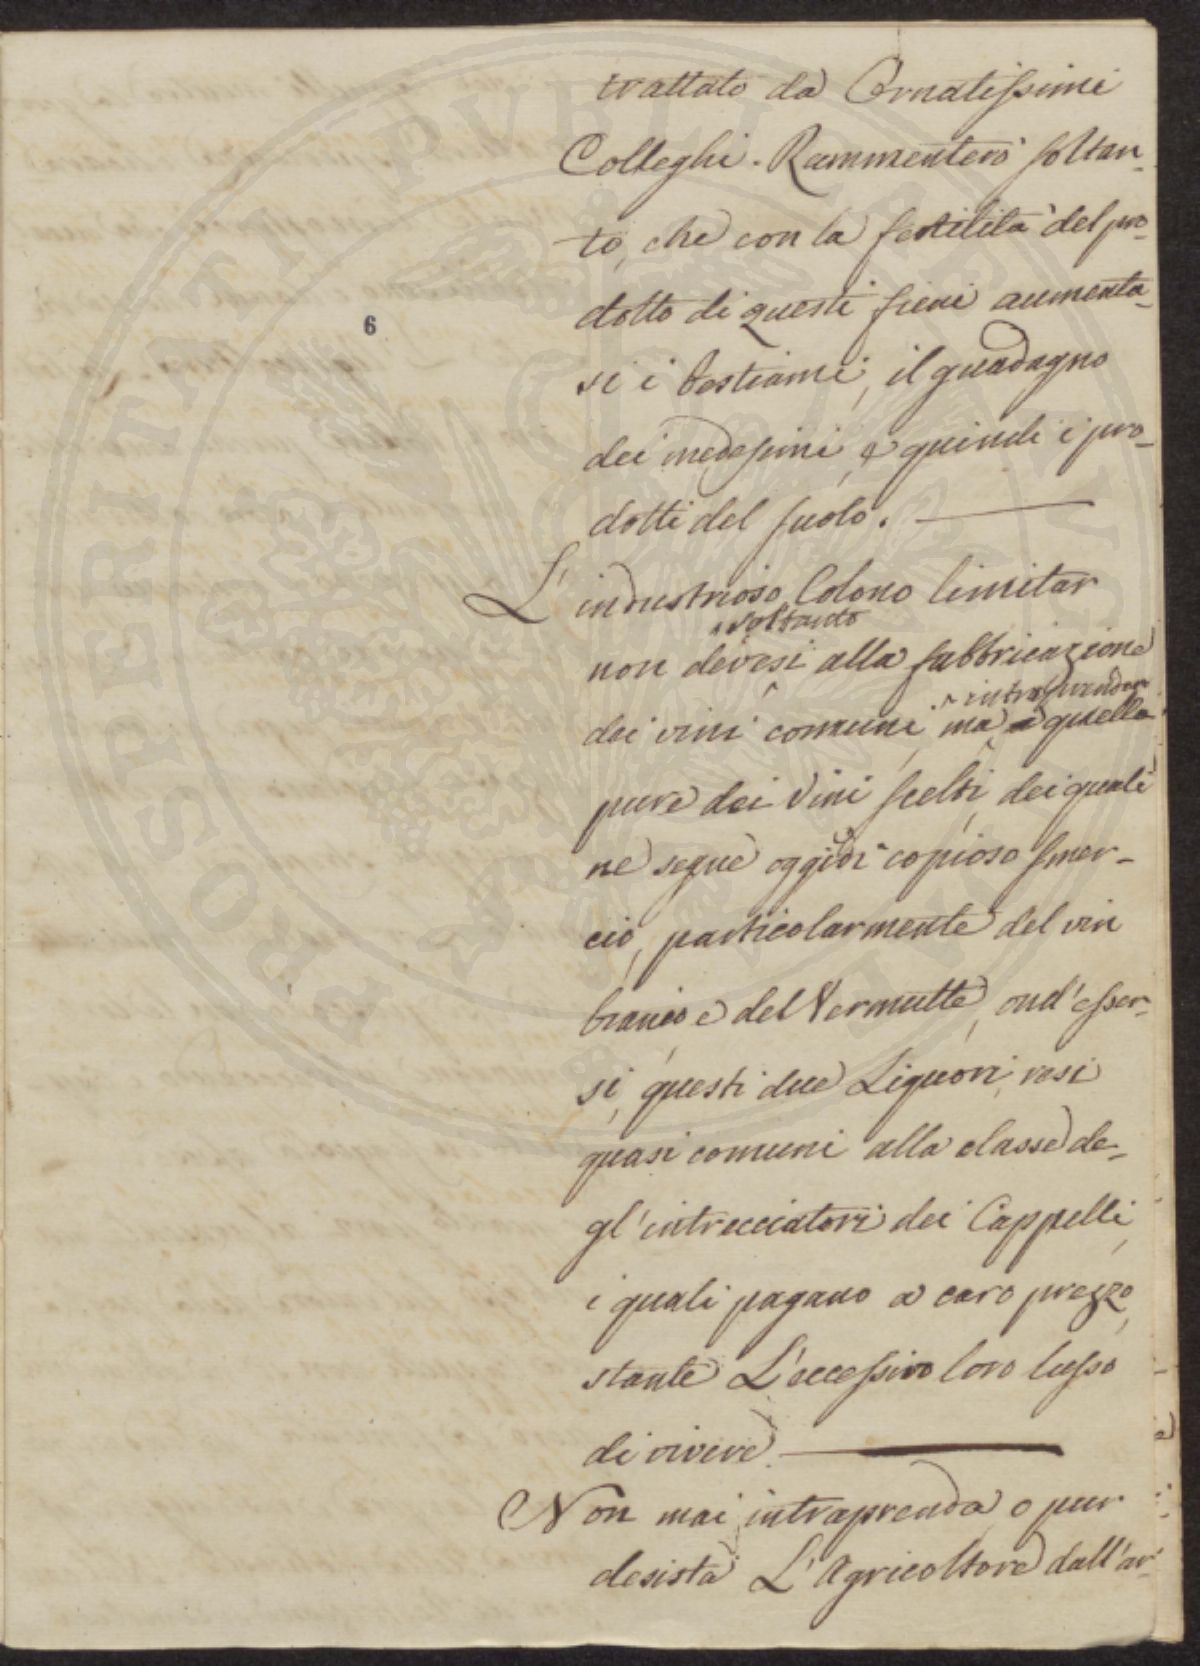 trattato da Ornatissimi
Colleghi. Rammenterò soltan-
to, che con la fertilità del pro-
dotto di questi fieni aumenta-
si i bestiami, il guadagno
6
dei medesimi, e quindi i pro-
dotti del suolo.
L'industrioso Colono limitar
soltanto
non devesi alla fabbricazione
intraprendere
dei vini comuni, ma a quella
pure dei vini scelti, dei quali
ne segue oggidì copioso smer-
cio, particolarmente del vin
bianco e del Vermutte, ond'esser-
si, questi due Liquori, resi
quasi comuni alla classe de-
gl'intrecciatori dei Cappelli,
i quali pagano a caro prezzo,
stante L'eccessivo loro lusso
di vivere.
Non mai intraprenda o pur
desista L'Agricoltore dall'ar-
PROSPERITATI PVBLICAE